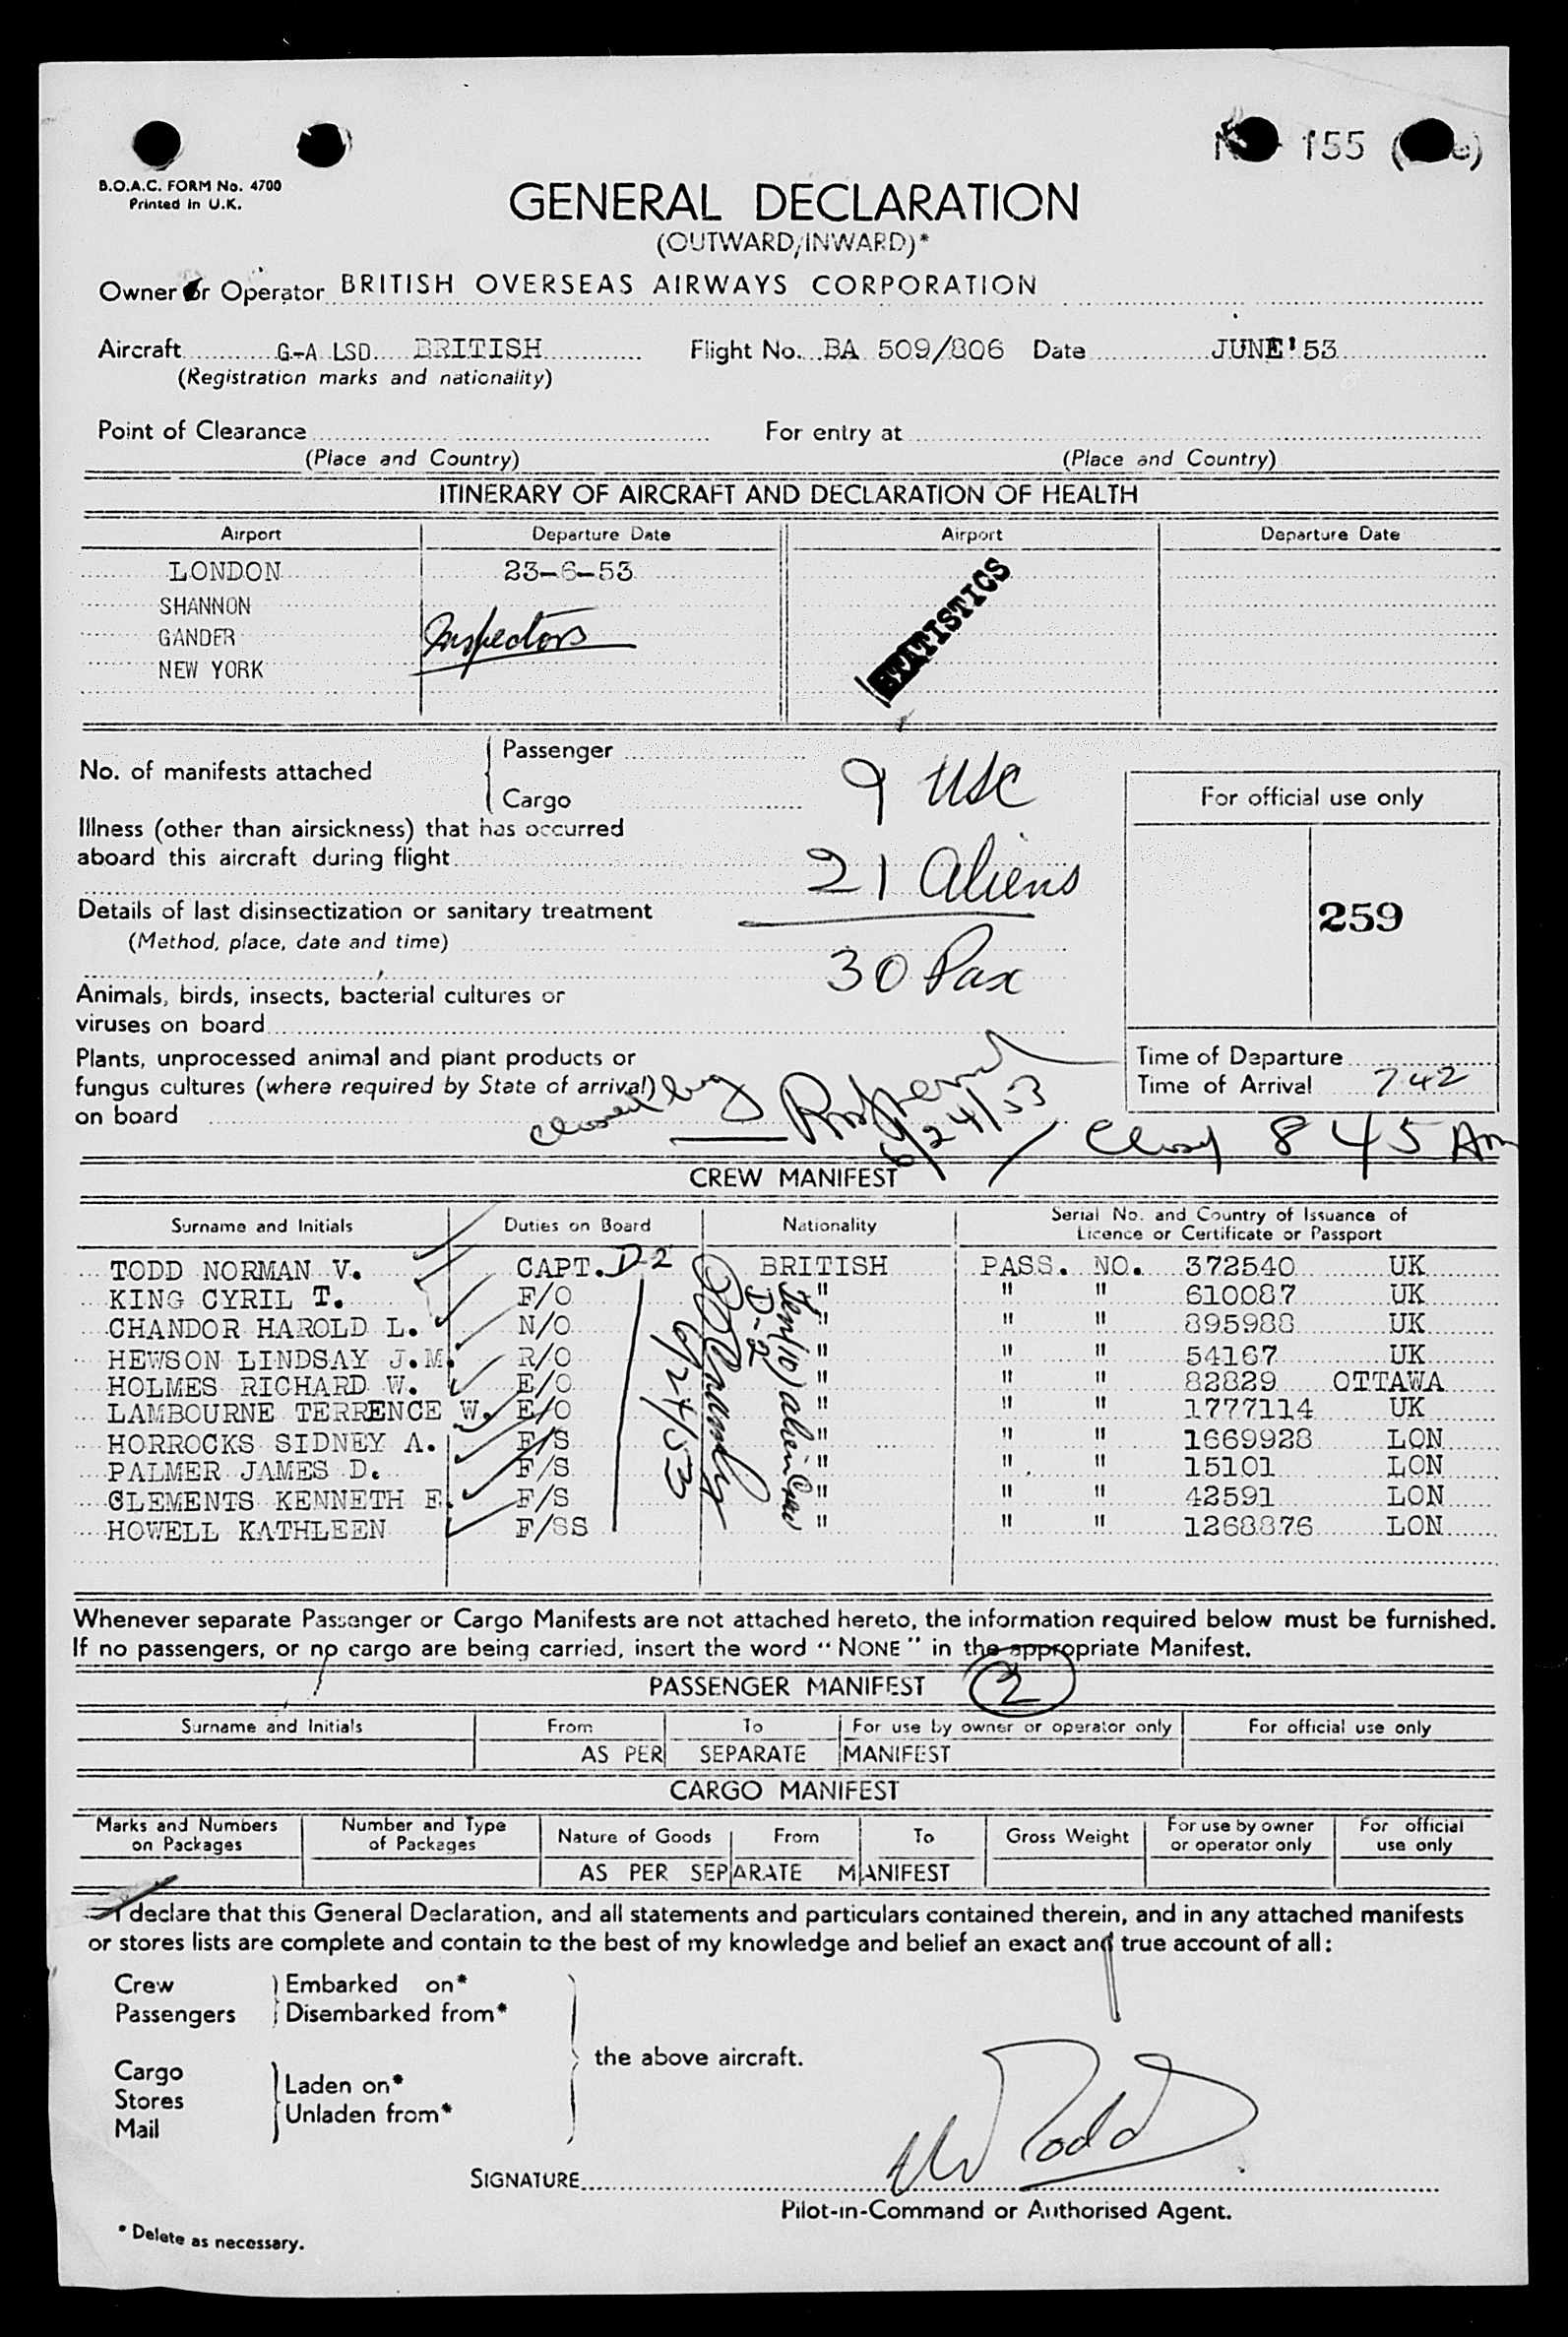 155
B.O.A.C. FORM No. 4700
Printed in U.K.
GENERAL DECLARATION
(OUTWARD/INWARD)*
Owner or Operator BRITISH OVERSEAS AIRWAYS CORPORATION
Aircraft G-A LSD BRITISH Flight No. BA 509/806 Date JUNE'53
(Registration marks and nationality)
Point of Clearance For entry at
(Place and Country) (Place and Country)
ITINERARY OF AIRCRAFT AND DECLARATION OF HEALTH
Airport Departure Date Airport Departure Date
LONDON 23-6-53
SHANNON
GANDER Inspectors
NEW YORK
STATISTICS
No. of manifests attached Passenger
Cargo
9 USC
For official use only
Illness (other than airsickness) that has occurred
aboard this aircraft during flight
21 Aliens
Details of last disinsectization or sanitary treatment
(Method, place, date and time)
259
30 Pax
Animals, birds, insects, bacterial cultures or
viruses on board
Plants, unprocessed animal and plant products or
fungus cultures (where required by State of arrival)
on board
Time of Departure
Time of Arrival 7 42
closed by
6/24/53
Closed 8 45 Am
CREW MANIFEST
Surname and Initials Duties on Board Nationality Serial No. and Country of Issuance of
Licence or Certificate or Passport
TODD NORMAN V. CAPT. D-2 BRITISH PASS. NO. 372540 UK
KING CYRIL T. F/O " " " 610087 UK
CHANDOR HAROLD L. N/O " " " 895988 UK
HEWSON LINDSAY J.M. R/O " " " 54167 UK
HOLMES RICHARD W. E/O " " " 82829 OTTAWA
LAMBOURNE TERRENCE W. E/O " " " 1777114 UK
HORROCKS SIDNEY A. F/S " " " 1669928 LON
PALMER JAMES D. F/S " " " 15101 LON
CLEMENTS KENNETH E. F/S " " " 42591 LON
HOWELL KATHLEEN F/SS " " " 1268876 LON
6/24/53
Ten (10) alien Crew
D-2
Whenever separate Passenger or Cargo Manifests are not attached hereto, the information required below must be furnished.
If no passengers, or no cargo are being carried, insert the word "NONE" in the appropriate Manifest.
PASSENGER MANIFEST 2
Surname and Initials From To For use by owner or operator only For official use only
AS PER SEPARATE MANIFEST
CARGO MANIFEST
Marks and Numbers on Packages Number and Type of Packages Nature of Goods From To Gross Weight For use by owner or operator only For official use only
AS PER SEPARATE MANIFEST
I declare that this General Declaration, and all statements and particulars contained therein, and in any attached manifests
or stores lists are complete and contain to the best of my knowledge and belief an exact and true account of all:
Crew Embarked on*
Passengers Disembarked from*
the above aircraft.
Cargo
Stores Laden on*
Mail Unladen from*
SIGNATURE NV Todd
Pilot-in-Command or Authorised Agent.
* Delete as necessary.